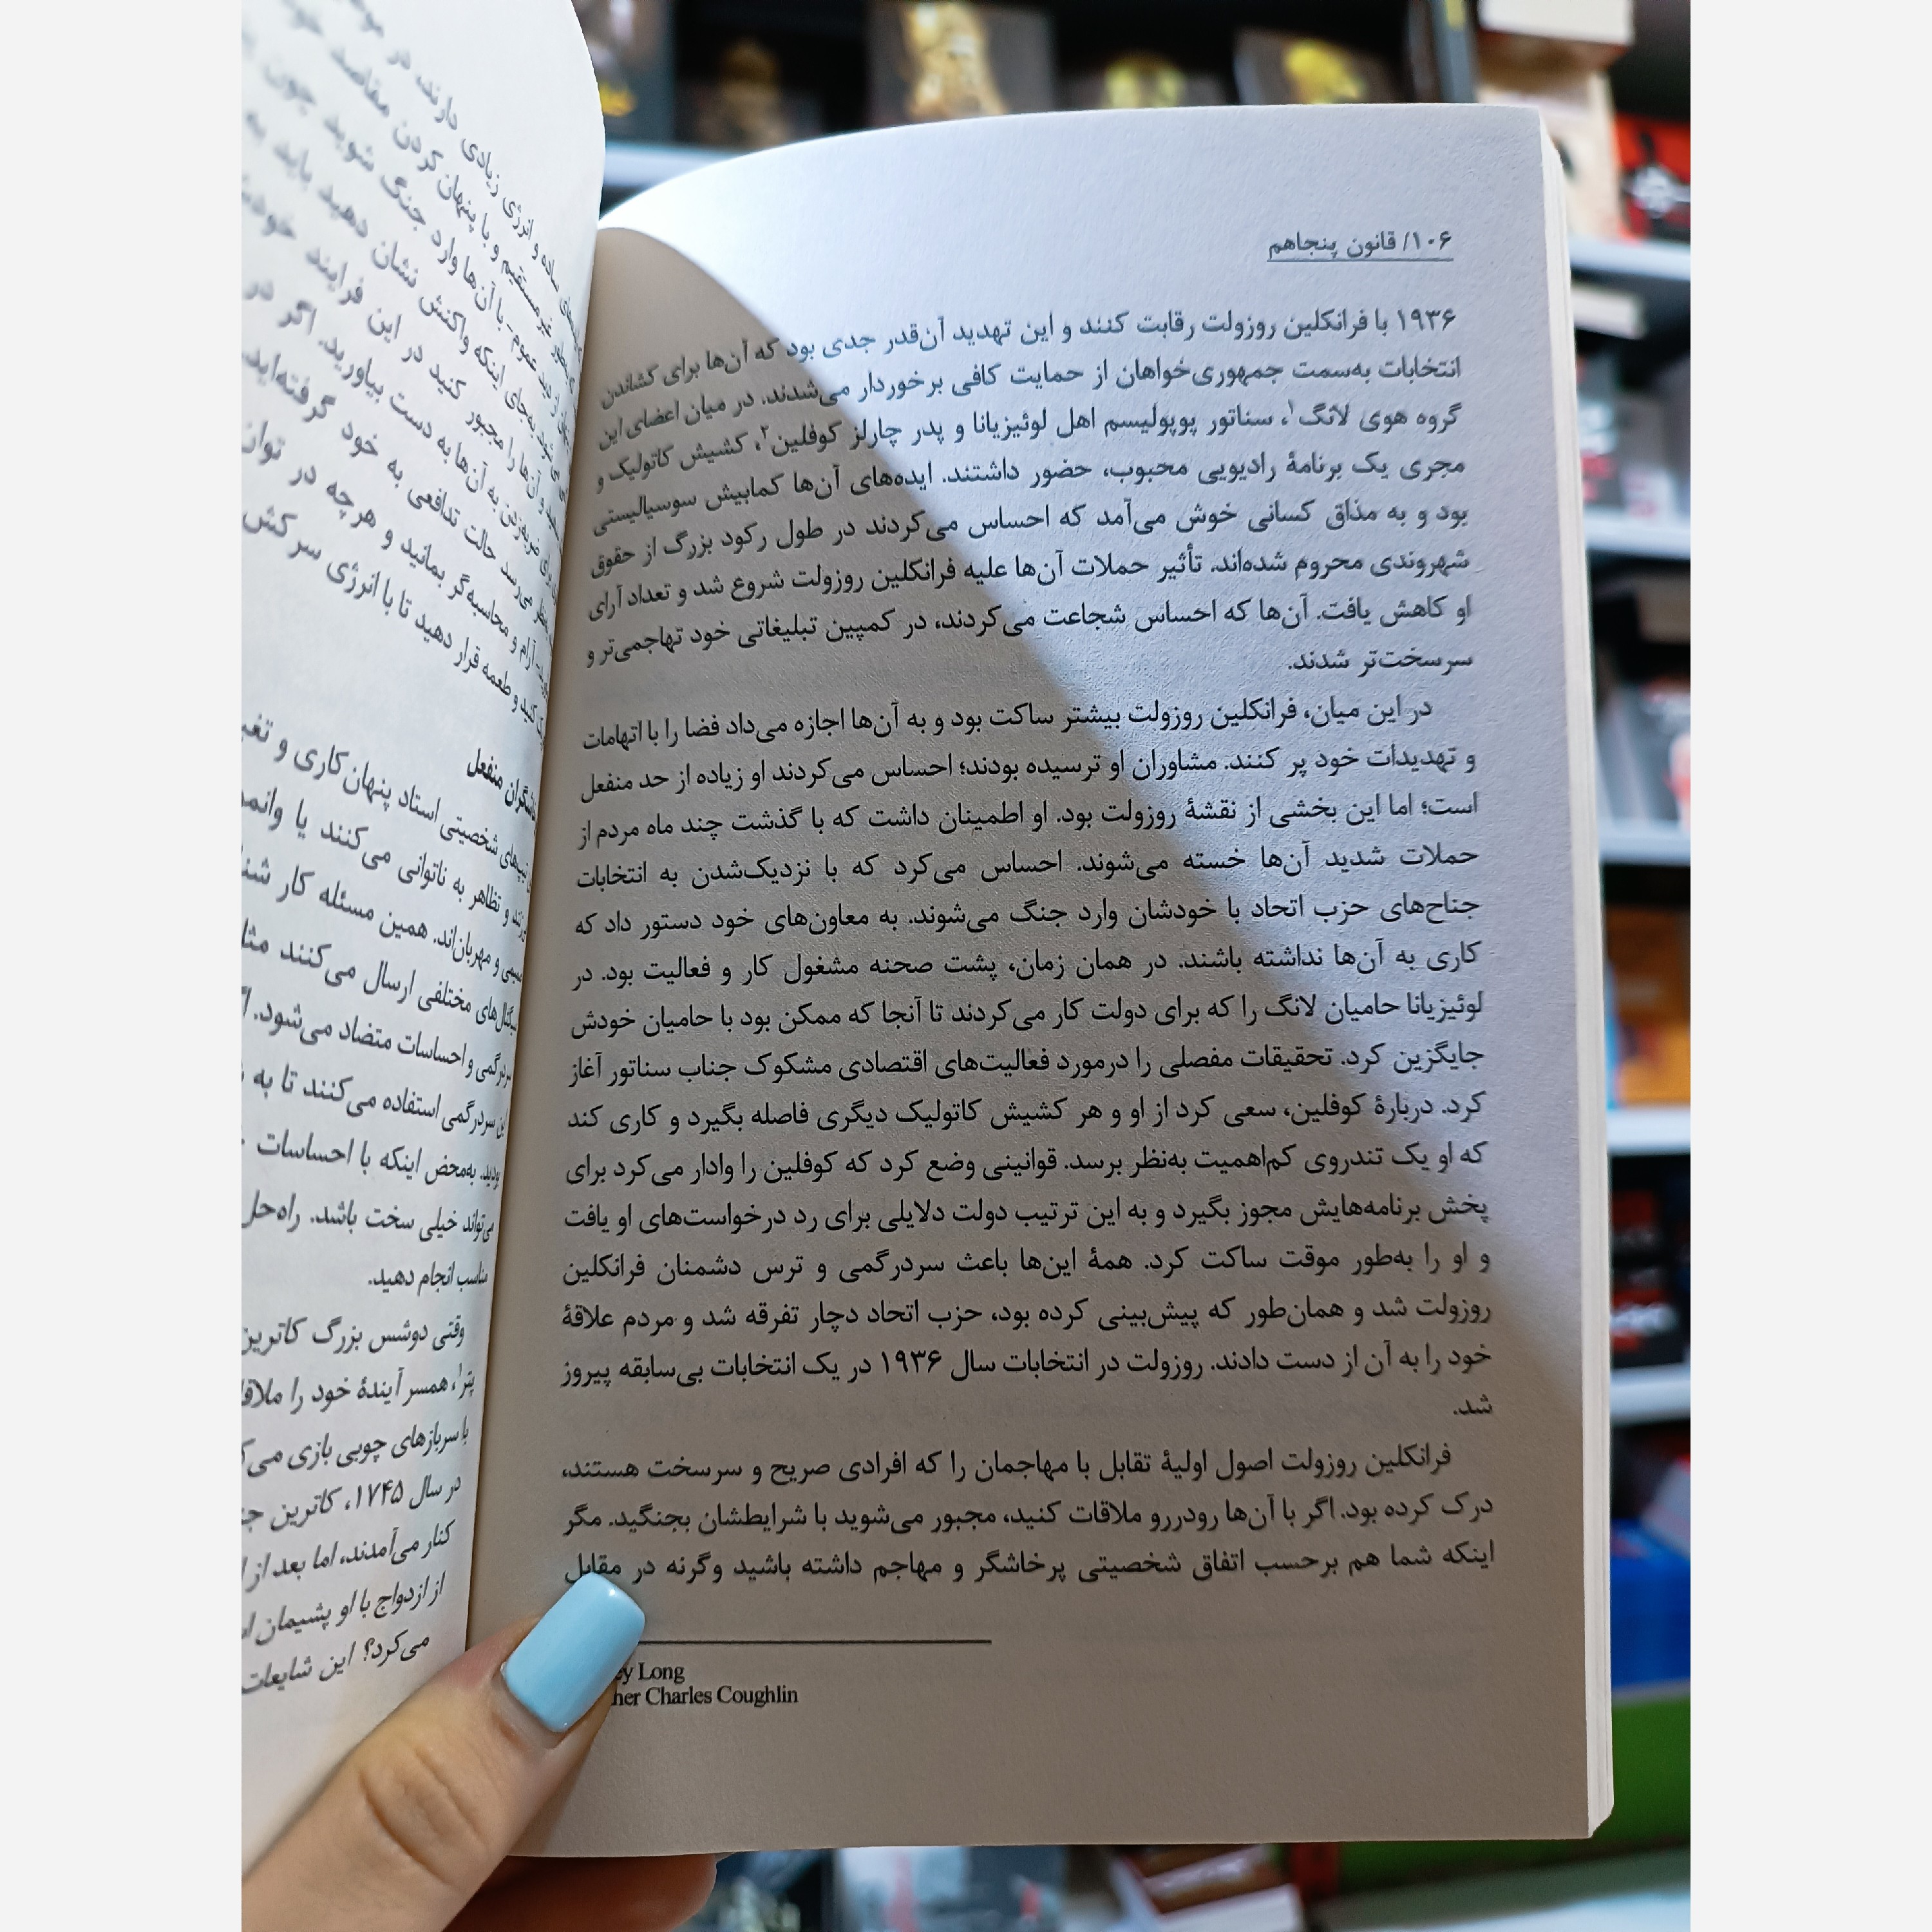 ۱۰۶/ قانون پنجاهم
۱۹۳۶ با فرانکلین روزولت رقابت کنند و این تهدید آن‌قدر جدی بود که آن‌ها برای کشاندن
انتخابات به‌سمت جمهوری‌خواهان از حمایت کافی برخوردار می‌شدند. در میان اعضای این
گروه هوی لانگ۱، سناتور پوپولیسم اهل لوئیزیانا و پدر چارلز کوفلین۲، کشیش کاتولیک و
مجری یک برنامهٔ رادیویی محبوب، حضور داشتند. ایده‌های آن‌ها کمابیش سوسیالیستی
بود و به مذاق کسانی خوش می‌آمد که احساس می‌کردند در طول رکود بزرگ از حقوق
شهروندی محروم شده‌اند. تأثیر حملات آن‌ها علیه فرانکلین روزولت شروع شد و تعداد آرای
او کاهش یافت. آن‌ها که احساس شجاعت می‌کردند، در کمپین تبلیغاتی خود تهاجمی‌تر و
سرسخت‌تر شدند.
در این میان، فرانکلین روزولت بیشتر ساکت بود و به آن‌ها اجازه می‌داد فضا را با اتهامات
و تهدیدات خود پر کنند. مشاوران او ترسیده بودند؛ احساس می‌کردند او زیاده از حد منفعل
است؛ اما این بخشی از نقشهٔ روزولت بود. او اطمینان داشت که با گذشت چند ماه مردم از
حملات شدید آن‌ها خسته می‌شوند. احساس می‌کرد که با نزدیک‌شدن به انتخابات
جناح‌های حزب اتحاد با خودشان وارد جنگ می‌شوند. به معاون‌های خود دستور داد که
کاری به آن‌ها نداشته باشند. در همان زمان، پشت صحنه مشغول کار و فعالیت بود. در
لوئیزیانا حامیان لانگ را که برای دولت کار می‌کردند تا آنجا که ممکن بود با حامیان خودش
جایگزین کرد. تحقیقات مفصلی را درمورد فعالیت‌های اقتصادی مشکوک جناب سناتور آغاز
کرد. دربارهٔ کوفلین، سعی کرد از او و هر کشیش کاتولیک دیگری فاصله بگیرد و کاری کند
که او یک تندروی کم‌اهمیت به‌نظر برسد. قوانینی وضع کرد که کوفلین را وادار می‌کرد برای
پخش برنامه‌هایش مجوز بگیرد و به این ترتیب دولت دلایلی برای رد درخواست‌های او یافت
و او را به‌طور موقت ساکت کرد. همهٔ این‌ها باعث سردرگمی و ترس دشمنان فرانکلین
روزولت شد و همان‌طور که پیش‌بینی کرده بود، حزب اتحاد دچار تفرقه شد و مردم علاقهٔ
خود را به آن از دست دادند. روزولت در انتخابات سال ۱۹۳۶ در یک انتخابات بی‌سابقه پیروز
شد.
فرانکلین روزولت اصول اولیهٔ تقابل با مهاجمان را که افرادی صریح و سرسخت هستند،
درک کرده بود. اگر با آن‌ها رودررو ملاقات کنید، مجبور می‌شوید با شرایطشان بجنگید. مگر
اینکه شما هم برحسب اتفاق شخصیتی پرخاشگر و مهاجم داشته باشید وگرنه در مقابل
Long
Charles Coughlin
ماده و انرژی زیادی دارند، در
غیرمستقیم و با پنهان کردن مقاصد
عموم- با آن‌ها وارد جنگ شوید چون
به‌جای اینکه واکنش نشان دهید باید به
و آن‌ها را مجبور کنید در این فرایند
به آن‌ها به دست بیاورید. اگر در
می‌رسد حالت تدافعی به خود گرفته‌اید
آرام و محاسبه‌گر بمانید و هرچه در توان
کنید و طعمه قرار دهید تا با انرژی سرکش
منفعل
شخصیتی استاد پنهان‌کاری و
و تظاهر به ناتوانی می‌کنند یا
و مهربان‌اند. همین مسئله کار
مختلفی ارسال می‌کنند
سردرگمی و احساسات متضاد می‌شود.
این سردرگمی استفاده می‌کنند تا به
به‌محض اینکه با احساسات
می‌تواند خیلی سخت باشد. راه‌حل
مناسب انجام دهید.
وقتی دوشس بزرگ کاترین
پتر۱، همسر آیندهٔ خود را
با سربازهای چوبی بازی
در سال ۱۷۴۵، کاترین
کنار می‌آمدند، اما بعد از
از ازدواج با او پشیمان
می‌کرد؟ این شایعات